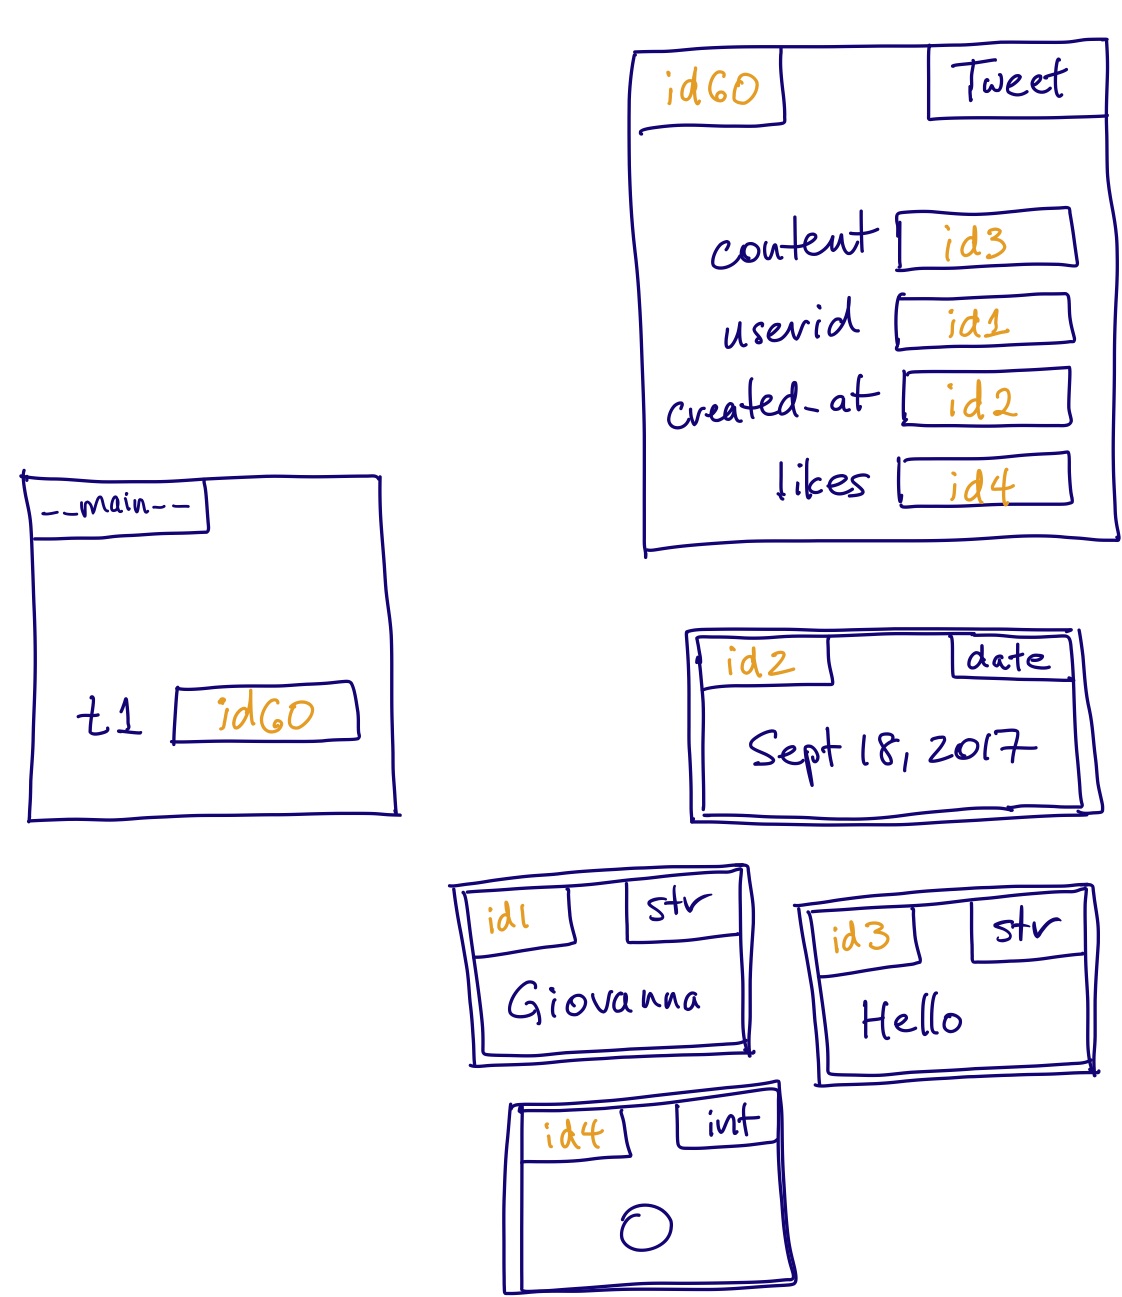 id60 Tweet
content id3
userid id1
created_at id2
likes id4
__main__
t1 id60
id2 date
Sept 18, 2017
id1 str
Giovanna
id3 str
Hello
id4 int
0